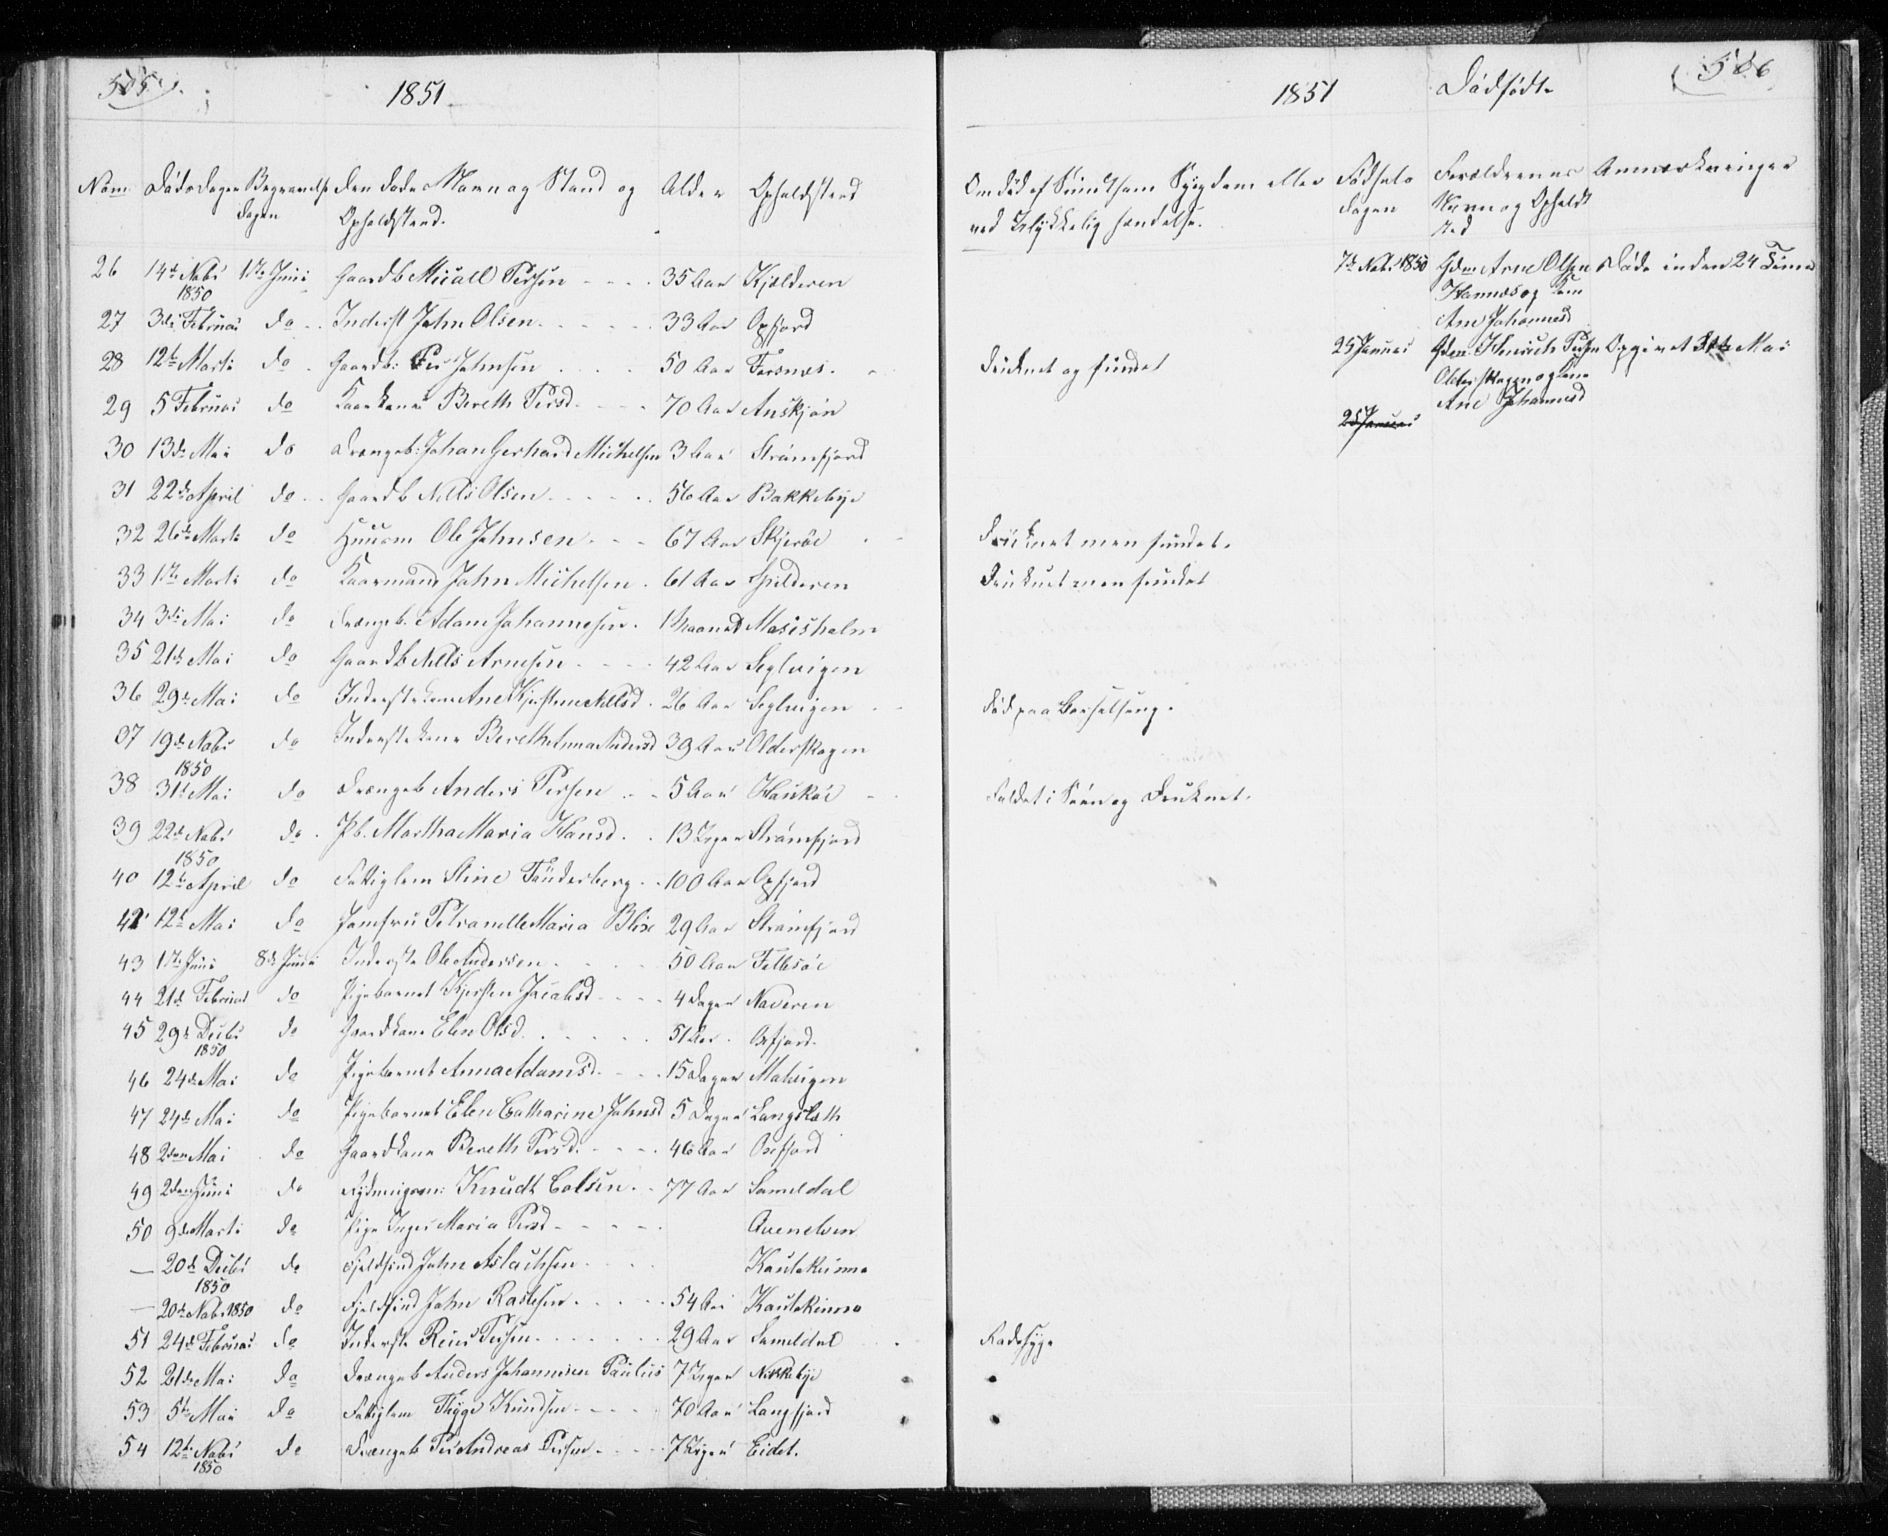 505
1851
Num Dødsdagen Begravelses dagen Den dødes Navn og Stand og Opholdsted. Alder Opholdsted
26 14de Nobr 1850 1ste Juni Gaardb Micall Persen 35 Aar Kjælderen
27 3die Februar do Inderst John Olsen 33 Aar Opfjord
28 12te Marti do Gaardb: Per Johnsen 50 Aar
29 5 Februar do Kaarkone Bereth Persd 70 Aar Anskjøn
30 13de Mai do Drengeb: Johan Gerhard Michelsen 3 Aar Strømfjord
31 22de April do Gaardb Nills Olsen 56 Aar Bakkebye
32 26de Marti do Huusm Ole Johnsen 67 Aar Skjerøe
33 1ste Marti do Kaarmand John Michelsen 61 Aar Spilderen
34 3die Mai do Drengeb. Adam Johannesen 1 Maaned Masisholm
35 21de Mai do Gaardb Nills Arnesen 42 Aar Seglvigen
36 29de Mai do Inderstekone Ane Kjirstine Nillsd 26 Aar Seglvigen
37 19de Nobr 1850 do Inderstekone Berethe Anna Andersd 39 Aar Olderskogen
38 31te Mai do Drengeb Anders Persen 5 Aar Haukøe
39 22de Nobr 1850 do Pb. Martha Maria Hansd 13 Uger Strømfjord
40 12te April do Fattiglem Stine Tönderberg 100 Aar Opfjord
42 12te Mai do Jomfru Petronelle Maria Blix 29 Aar Strømfjord
43 1ste Juni 8de Juni Inderste Ole Andersen 50 Aar
44 21de Februar do Pigebarnet Kjersten Jacobsd 4 Dager Naveren
45 29de Decbr 1850 do Gaardkone Elen Olsd 51 Aar Oxfjord
46 24de Mai do Pigebarnet Anna Adamsd 15 Dager Malvigen
47 24de Mai do Pigebarnet Elen Catharine Johnsd 5 Dager Langslæth
48 2den Mai do Gaardkone Bereth Persd 46 Aar Oxfjord
49 2den Juni do Rydningsm: Knudt Colsen 77 Aar Sameldal
50 9de Marti do Pige Inger Maria Persd
— 20de Decbr 1850 do Fjeldfind John Aslachsen Kautokeino
— 20de Nobr 1850 do Fjeldfind John Rastesen 54 Aar Kautokeino
51 24de Februar do Inderste Persen 29 Aar Sameldal
52 21de Mai do Drengeb Anders Johannesen Paulus 7 Uger
53 5te Mai do Fattiglem Thyge Knudsen 70 Aar Langfjord
54 12te Nobr 1850 do Drengeb Per Andreas Persen 7 Uger Eidet.
506
1851 Dødfødte
Om død af Smitsom Sygdom eller ved Ulykkelig Hændelse. Fødsels dagen Forældrenes Navn og Opholdt sted Anmærkninger
7de Nobr 1850 Gdm Arne Olsen Hannæs og Kone Ane Johannesd Døde inden 24 Timer
25 Januar Gdm Henrich Persen Olderskogen og Kone Ane Johannesd Opgivet Mai
25 Januar
Druknet og fundet
Druknet men fundet.
Druknet men fundet
Død paa Barselseng.
Faldet i Søen og Druknet.
Radesyge